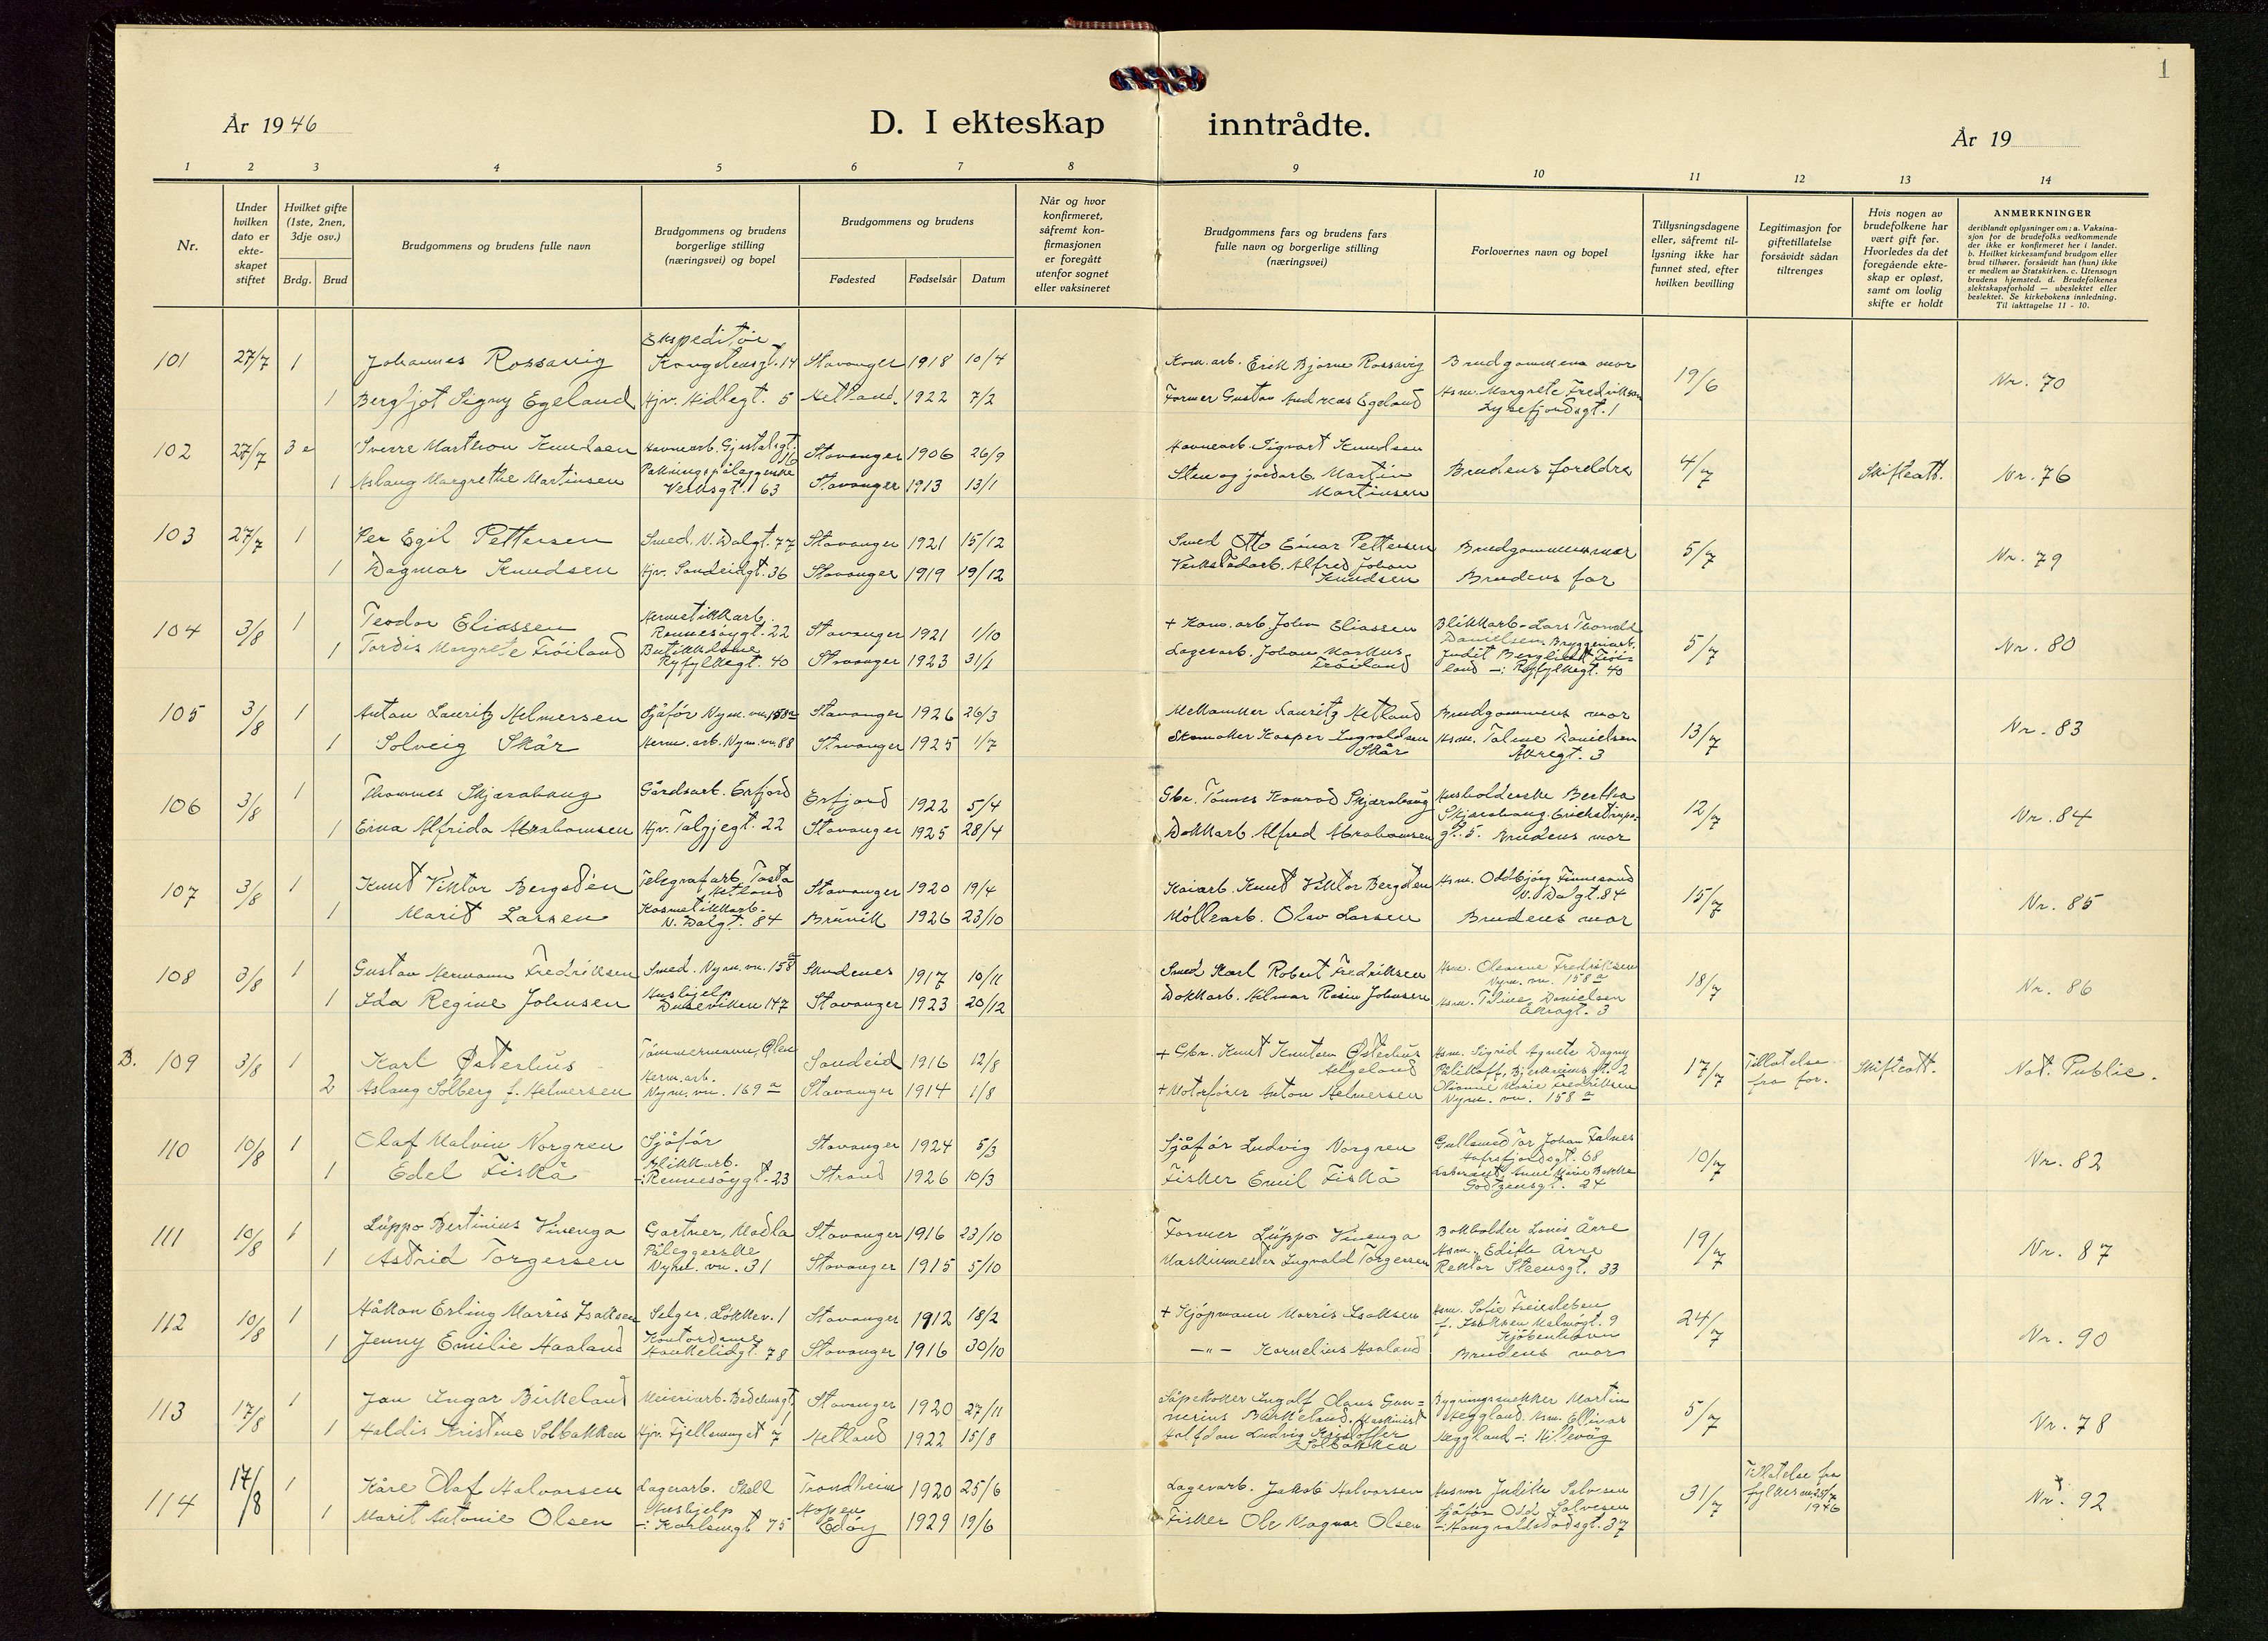 1
År 1946
D. I ekteskap inntrådte.
År 19
1 2 3 4 5 6 7 8 9 10 11 12 13 14
Nr.
Under hvilken dato er ekte-skapet stiftet
Hvilket gifte (1ste, 2nen, 3dje osv.)
Brdg. Brud
Brudgommens og brudens fulle navn
Brudgommens og brudens borgerlige stilling (næringsvei) og bopel
Brudgommens og brudens
Fødested Fødselsår Datum
Når og hvor konfirmeret, såfremt kon-firmasjonen er foregått utenfor sognet eller vaksineret
Brudgommens fars og brudens fars fulle navn og borgerlige stilling (næringsvei)
Forlovernes navn og bopel
Tillysningsdagene eller, såfremt til-lysning ikke har funnet sted, efter hvilken bevilling
Legitimasjon for giftetillatelse forsåvidt sådan tiltrenges
Hvis nogen av brudefolkene har vært gift før. Hvorledes da det foregående ekte-skap er opløst, samt om lovlig skifte er holdt
ANMERKNINGER
deriblandt oplysninger om: a. Vaksina-sjon for de brudefolks vedkommende der ikke er konfirmeret her i landet. b. Hvilket kirkesamfund brudgom eller brud tilhører, forsåvidt han (hun) ikke er medlem av Statskirken. c. Utensogn brudens hjemsted. d. Brudefolkenes slektskapsforhold — ubeslektet eller beslektet. Se kirkebokens innledning. Til iakttagelse 11 - 10.
101 27/7 1 Johannes Rossavig Ekspeditør Kongstensgt. 14 Stavanger 1918 10/4 Kom. arb. Erik Bjarne Rossavig Brudgommens mor 19/6 Nr. 70
1 Bergljot Signy Egeland Hjv. Hidlegt. 5 Hetland 1922 7/2 Farmer Gustav Andreas Egeland Hsm. Margrete Fredriksen Lysefjordsgt. 1
102 27/7 3e Sverre Marthon Knudsen Havnearb. Gjestalsgt. 16 Stavanger 1906 26/9 Havnearb. Sigvart Knudsen Brudens foreldre 4/7 Skifteatt. Nr. 76
1 Aslaug Margrethe Martinsen Verksgt. 63 Stavanger 1913 13/1 Sten og jordarb. Martin Martinsen
103 27/7 1 Per Egil Pettersen Smed, N. Dalgt. 77 Stavanger 1921 15/12 Smed Otto Einar Pettersen Brudgommens mor 5/7 Nr. 79
1 Dagmar Knudsen Hjv. Sandeidgt. 36 Stavanger 1919 19/12 Verkstedarb. Alfred Johan Knudsen Brudens far
104 3/8 1 Teodor Eliassen Hermetikkarb. Rennesøygt. 22 Stavanger 1921 1/10 + Kom. arb. John Eliassen Blikkarb. Lars Danielsen, Bryggeriarb. 5/7 Nr. 80
1 Tordis Margrete Frøiland Butikkdame Ryfylkegt. 40 Stavanger 1923 31/1 Lagerarb. Johan Markus Frøiland Judit Frøiland -:- Ryfylkegt. 40
105 3/8 1 Anton Lauritz Helmersen Sjåfør Nym. vn. 158a Stavanger 1926 26/3 Lauritz Hetland Brudgommens mor 13/7 Nr. 83
1 Solveig Skår Herm. arb. Nym. vn. 88 Stavanger 1925 1/7 Skomaker Kasper Ingvaldsen Skår Hsm. Taline Danielsen Åkregt. 3
106 3/8 1 Thommes Skjæraabaug Gårdsarb. Erfjord Erfjord 1922 5/4 Gbr. Tønnes Konrad Husholderske Bertha 12/7 Nr. 84
1 Erna Alfrida Abrahamsen Hjv. Talgjegt. 22 Stavanger 1925 28/4 Dokkarb. Alfred Abrahamsen gt. 5. Brudens mor
107 3/8 1 Knut Viktor Bergsten Telegrafarb. Tasta Hetland Stavanger 1920 19/4 Kaiarb. Knut Viktor Bergsten Hsm. Oddbjørg Finnesand N. Dalgt. 84 15/7 Nr. 85
1 Marit Larsen N. Dalgt. 84 Bruvik 1926 23/10 Møllearb. Olav Larsen Brudens mor
108 3/8 1 Gustav Hermann Fredriksen Smed. Nym. vn. 158a Skudenes 1917 10/11 Smed Karl Robert Fredriksen Hsm. Fredriksen Nym. vn. 158a 18/7 Nr. 86
1 Ida Regine Johnsen Hushjelp Duseviken 147 Stavanger 1923 20/12 Dokkarb. Hilmar Johnsen Hsm. Taline Danielsen Åkregt. 3
B. 109 3/8 1 Karl Østerhus Tømmermann, Ølen Sandeid 1916 12/8 + Gbr. Knut Knutsen Østerhus Hsm. Sigrid Agnete Dagny Helgeland Bjerkreimsgt. 2 17/7 Tillatelse fra for. Skifteatt. Not. Public.
2 Aslaug Solberg f. Helmersen Herm. arb. Nym. vn. 169a Stavanger 1914 1/8 + Motorfører Anton Helmersen Marie Fredriksen Nym. vn. 158a
110 10/8 1 Olaf Malvin Norgren Sjåfør Stavanger 1924 5/3 Sjåfør Ludvig Norgren Gullsmed Tor Johan Falnes Hafrsfjordsgt. 68 10/7 Nr. 82
1 Edel Fiskå Blikkarb. -:- Rennesøygt. 23 Strand 1926 10/3 Fisker Emil Fiskå Anne Marie Bakke Godtzensgt. 24
111 10/8 1 Lüppo Bertinius Vinenga Gartner, Madla Stavanger 1916 23/10 Farmer Lüppo Vinenga Bokholder Louis Årre 19/7 Nr. 87
1 Astrid Torgersen Påleggerske Nym. vn. 31 Stavanger 1915 5/10 Maskinmester Ingvald Torgersen Hsm. Edith Årre Rektor Steensgt. 33
112 10/8 1 Håkon Erling Morris Isaksen Selger, Løkkev. 1 Stavanger 1912 18/2 + Kjøpmann Morris Isaksen Hsm. Sofie Freiesleben f. Isaksen Malmøgt. 9 Kjøbenhavn 24/7 Nr. 90
1 Jenny Emilie Haaland Kontordame Haukelidgt. 78 Stavanger 1916 30/10 —"— Kornelius Haaland Brudens mor
113 17/8 1 Jan Ingar Birkeland Meieriarb. Badehusgt. 1 Stavanger 1920 27/11 Såpekoker Ingolf Olaus Gunnerius Birkeland. Bygningssnekker Martin Heggland. 5/7 Nr. 78
1 Haldis Kristine Solbakken Hjv. 7 Hetland 1922 15/8 Maskinist Halfdan Ludvig Kristoffer Solbakken Hsm. Ellinor Heggland -:- Hillevåg
114 17/8 1 Kåre Olaf Halvorsen Lagerarb. Shell Trondheim 1920 25/6 Lagerarb. Jakob Halvorsen Husmor Judith Salvesen 31/7 Tillatelse fra fylkesm. 25/7 1946 Nr. 92
1 Marit Antonie Olsen Hushjelp -:- Karlsmgt 75 Hopen Edøy 1929 19/6 Fisker Ole Magnar Olsen Sjåfør Odd Salvesen -:- Haugvaldstadsgt. 37